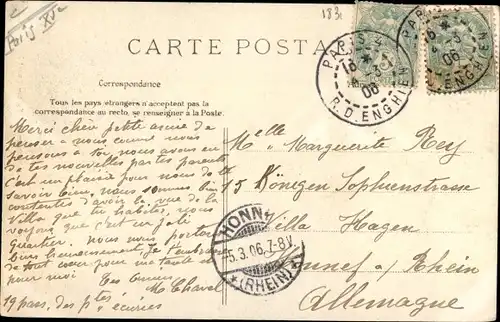 Paris Xe
183
CARTE POSTA
PARIS
18 *
5-3
06
R. D. ENGHIEN
PARIS
5-3
06
ENGHIEN
Correspondance
Tous les pays etrangers n'acceptent pas la
correspondance au recto, se renseigner à la Poste.
Merci chère petite amie de
penser a nous comme nous
pensons a toi, nous avons eu
de tes nouvelles par tes parents
C'est un plaisir pour nous de te
savoir bien, nous sommes bien
contentes d'avoir la vue de la
Villa que tu habites, nous
voyons que c'est un joli
quartier. Nous nous portons
bien heureusement. Je t'embrasse
de tout cœur pour ma tante et
pour moi
Tes amies
M Chaval
19 pass. des ptes écuries
Melle Marguerite Rey
15 Königen Sophenstrasse
Villa Hagen
Honnef a/ Rhein
Allemagne
HONNEF
5.3.06.7-8V.
* (RHEIN) *